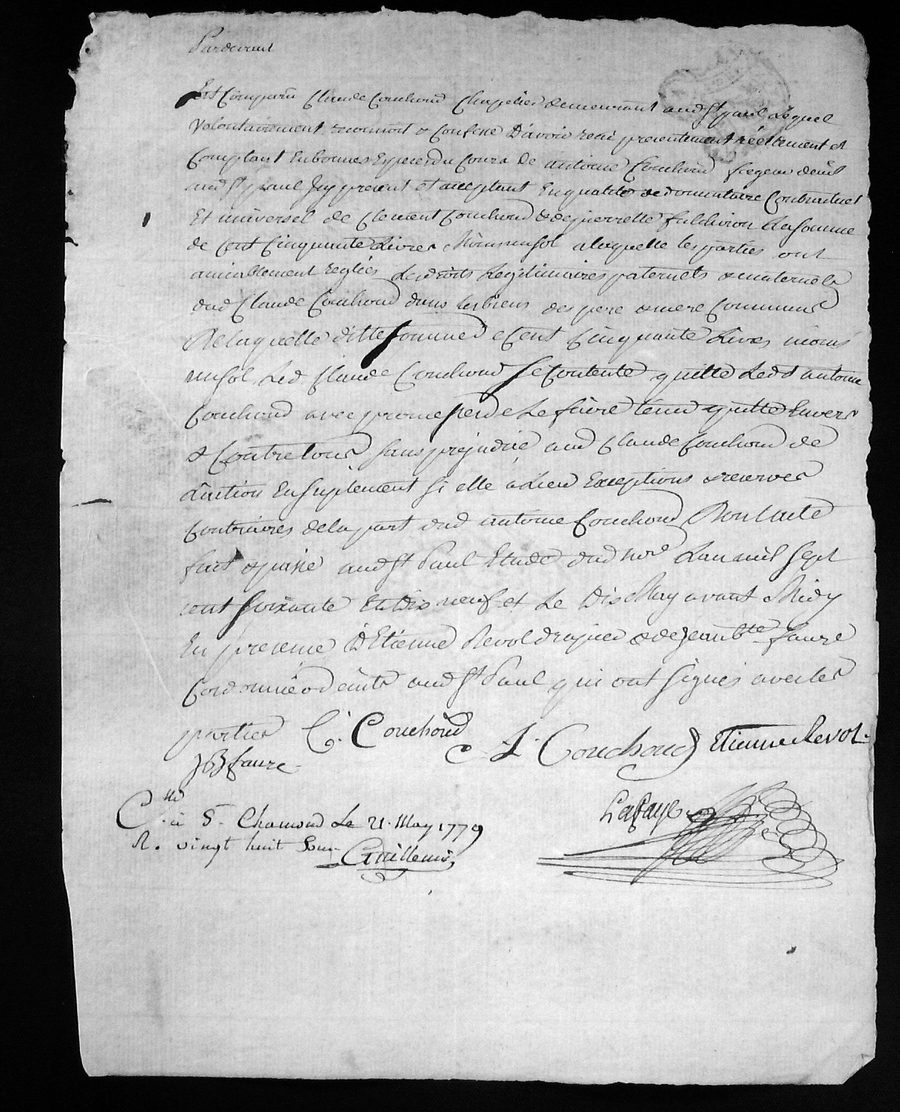 Pardevant
Est Comparu Claude Couchoud Chapelier demeurant aud St paul Lequel
Volontairement reconnoit & Confesse D'avoir reçu presentement réellement et
Comptant En bonnes Espece du Cours de antoine Couchoud
aud St paul Icy present et acceptant En qualité de donnataire Contractuel
Et universel de Clement Couchoud & de pierrette La somme
de Cent Cinquante Livres Moins un sol a laquelle les parties ont
amiablement reglées Les droits Legitimaires paternels & maternels
dud Claude Couchoud dans les biens des pere & mere Communs
De laquelle ditte somme de Cent Cinquante Livres moins
un sol, Led Claude Couchoud Se Contente quitte Led antoine
Couchoud avec promesse de Le faire tenir quitte Envers
& Contre tous sans prejudice aud Claude Couchoud de
L'action En suplement si elle a Lieu Exceptions & reserves
Contraires de la part dud antoine Couchoud Dont acte
fait & passé aud St Paul Etude dud nore Lan mil Sept
cent soixante En Dix neuf et Le Dix May avant Midy
En presence D'Etienne Revol & de Jean bte faure
Cordonnié aud St Paul qui ont signés avec les
parties C. Couchoud A. Couchoud Etienne Revol
JB faure
Lafay
Clé à St Chamond Le 21 May 1779
R. vingt huit sous Guillemin